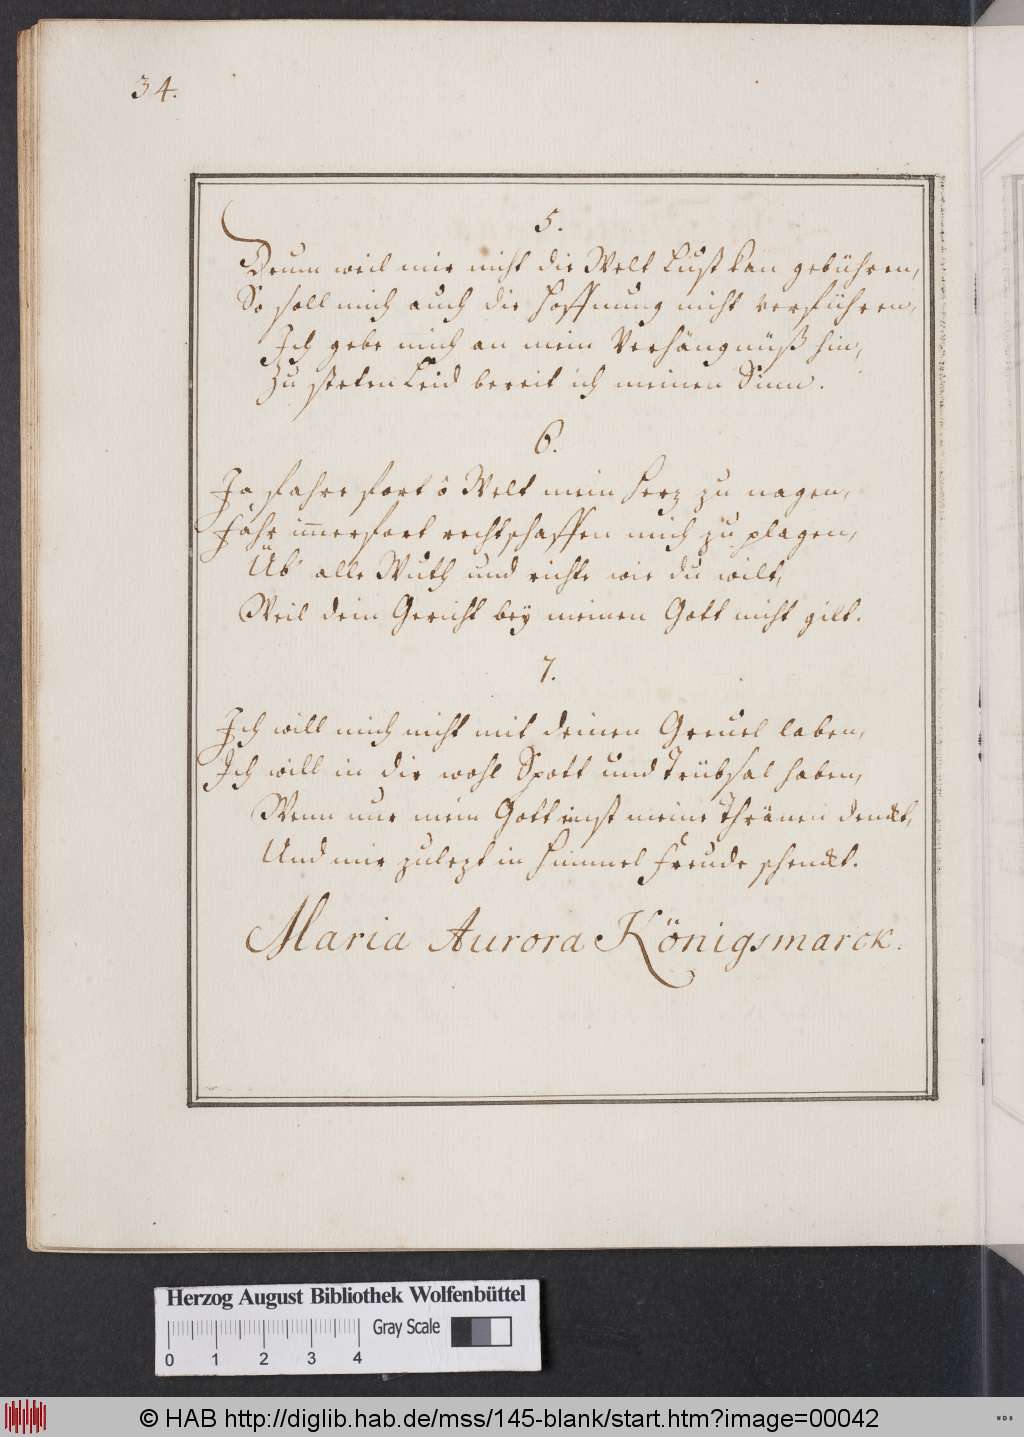 34.
5.
Drum weil mir nicht die Welt Lust kan gebühren,
So soll mich auch die Hoffnung nicht verführen,
Ich gebe mich an mein Verhängnüß hin,
Zu steten Leid bereit ich meinen Sinn.
6.
Ja fahre fort ô Welt mein Herz zu nagen,
Fahr immerfort rechtschaffen mich zu plagen,
Üb' alle Wuth und richte wie du wilt,
Weil dein Gericht bey meinen Gott nicht gilt.
7.
Ich will mich nicht mit deinen Greuel laben,
Ich will in dir wohl Spott und Trübsal haben,
Wenn nur mein Gott einst meine Thränen denckt,
Und mir zulezt in Himmel Freude schenckt.
Maria Aurora Königsmarck.
Herzog August Bibliothek Wolfenbüttel
Gray Scale
0 1 2 3 4
© HAB http://diglib.hab.de/mss/145-blank/start.htm?image=00042